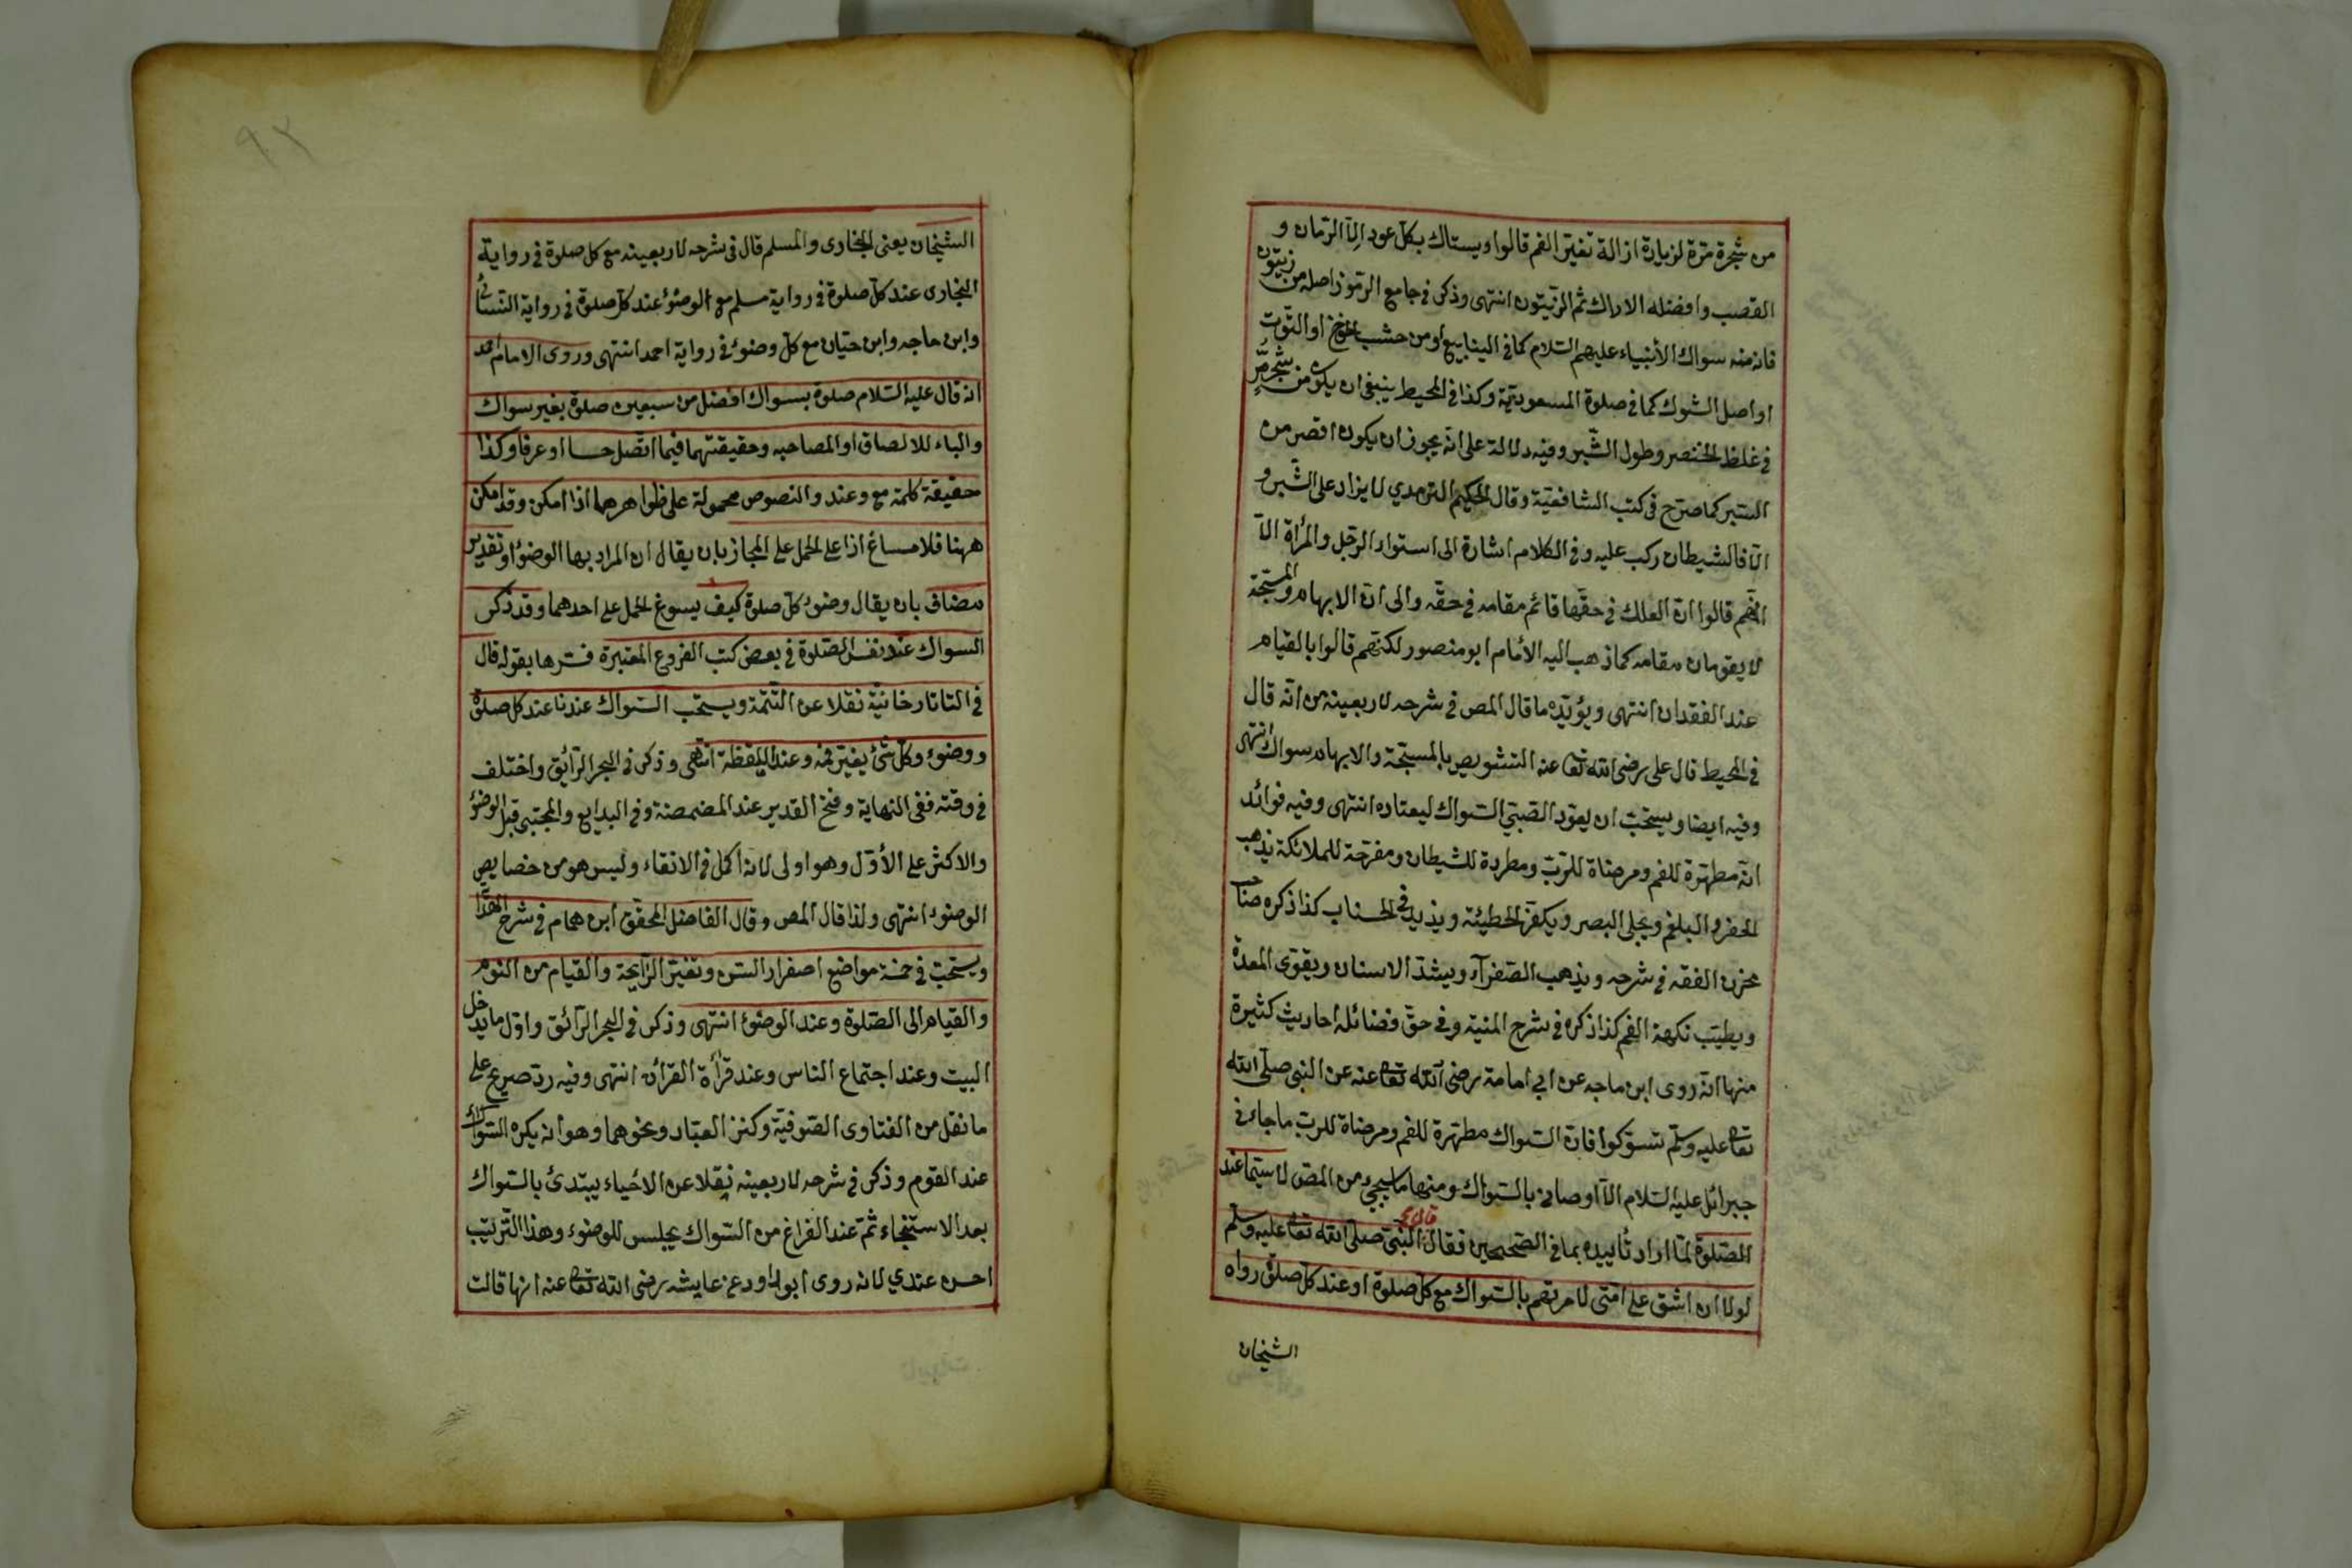 من شجرة مرّة لزيادة ازالة تغيّر الفم قالوا ويستاك بكلّ عود الّا الرّمان و
القصب وافضله الاراك ثم الزّيتون انتهى وذكر في جامع الرّموز اصله من زيتون
فانه منه سواك الأنبياء عليهم السّلام كما في الينابيع او من خشب الخوخ او التّوت
او اصل الشوك كما في صلوة المسعوديّة وكذا في المحيط ينبغي ان يكون من شجر مرّ
في غلظ الخنصر وطول الشّبر وفيه دلالة على انّه يجوز ان يكون اقصر من
الشبر كما صرّح في كتب الشافعيّة وقال الحكيم الترمدي لا يزاد على الشّبر و
الّا فالشيطان ركب عليه وفي الكلام اشارة الى استواء الرّجل والمرأة الّا
انّهم قالوا انّ العلك في حقّها قائم مقامه في حقّه والى انّ الابهام والمسبّحة
لا يقومان مقامه كما ذهب اليه الأمام ابو منصور لكنّهم قالوا بالقيام
عند الفقدان انتهى ويؤيّده ما قال المص في شرحه لاربعينه من انّه قال
في المحيط قال على رضى الله تعا عنه التشويص بالمسبّحة والابهام سواك انتهى
وفيه ايضا ويستحبّ ان يعوّد الصّبيّ السّواك ليعتاده انتهى وفيه فوائد
انّه مطهّرة للفم ومرضاة للرّبّ ومطردة للشيطان ومفرّحة للملائكة يذهب
الحفر والبلغم ويجلى البصر ويكفّر الخطيئة ويذيد في الحسنات كذا ذكره صاحب
مخزن الفقه في شرحه ويذهب الصّفرآء ويشدّ الاسنان ويقوّى المعدة
ويطيّب نكهة الفم كذا ذكره في شرح المنية وفي حقّ فضائله احاديث كثيرة
منها انّه روى ابن ماجه عن ابي امامة رضى الله تعا عنه عن النبي صلّى الله
تعا عليه وسلّم تسوّكوا فانّ السّواك مطهّرة للفم ومرضاة للرب ما جاءني
جبرائل عليه السّلام الّا اوصاني بالسّواك ومنها ما سيجيء من المص لا سيّما عند
الصّلوة لمّا اراد تأييده بما في الصّحيحين فقال النّبيّ صلّى الله تعا عليه وسلّم
لولا ان اشق على امّتي لامرتهم بالسّواك مع كلّ صلوة او عند كلّ صلوة رواه
الشيخان
٩٢
الشيخان يعنى البخارى والمسلم قال في شرحه لاربعينه مع كل صلوة في رواية
البخارى عند كلّ صلوة في رواية مسلم مع الوضوء عند كلّ صلوة في رواية النّسائي
وابن ماجه وابن حبّان مع كلّ وضوء في رواية احمد انتهى وروى الامام احمد
انه قال عليه السّلام صلوة بسواك افضل من سبعين صلوة بغير سواك
والباء للالصاق او المصاحبه وحقيقتهما فيما اتّصل حسا او عرفا وكذا
حقيقة كلمة مع وعند والنصوص محمولة على ظواهرهما اذا امكن وقد امكن
ههنا فلا مساغ اذا على الحمل على المجاز بان يقال ان المراد بها الوضوء او تقدير
مضاف بان يقال وضوء كلّ صلوة كيف يسوغ الحمل على احدهما وقد ذكر
السواك عند نفس الصّلوة في بعض كتب الفروع المعتبرة فسّرها بقوله قال
في التاتارخانيّة نقلا عن التّتمّة ويستحّب السّواك عندنا عند كل صلوة
ووضوء وكلّ شئ يغيّر فمه وعند اليقظة انتهى وذكر في البحر الرّائق واختلف
في وقته ففي النهاية وفتح القدير عند المضمضة وفي البدايع والمجتبى قبل الوضوء
والاكثر على الأوّل وهو اولى لانه اكمل في الانقاء وليس هو من خصايص
الوضوء انتهى ولذا قال المص وقال الفاضل المحقّق ابن همام في شرح الهدا
ويستحبّ في خمسة مواضع اصفرار السّن وتغيّر الرّايحة والقيام من النّوم
والقيام الى الصّلوة وعند الوضوء انتهى وذكر في البحر الرّائق واوّل ما يدخل
البيت وعند اجتماع الناس وعند قرأة القرأن انتهى وفيه ردّ صريح على
ما نقل من الفتاوى الصّوفيّة وكنز العبّاد ونحوهما وهو انه يكره السّواك
عند القوم وذكر في شرحه لاربعينه نقلا عن الاحياء يبتدئ بالسّواك
بعد الاستنجاء ثمّ عند الفراغ من السّواك يجلس للوضوء وهذا التّرتيب
احسن عندي لانه روى ابو داود عن عايشه رضى الله تعا عنه انها قالت